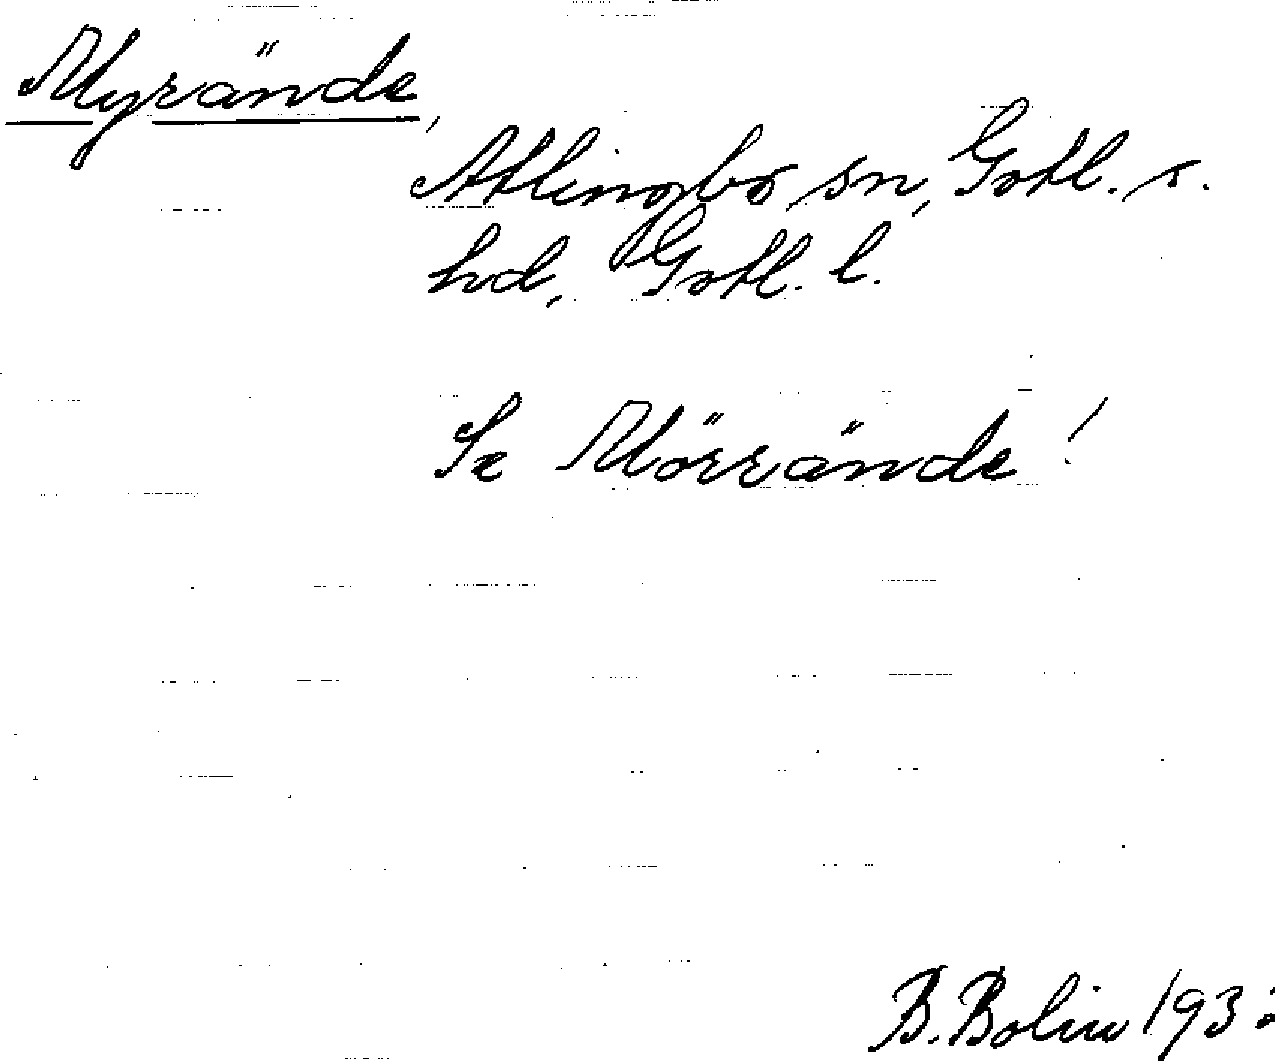 Myrände,
Atlingbo sn, Gotl. s.
hd, Gotl. l.
Se Mörrände!
B. Bolin 193